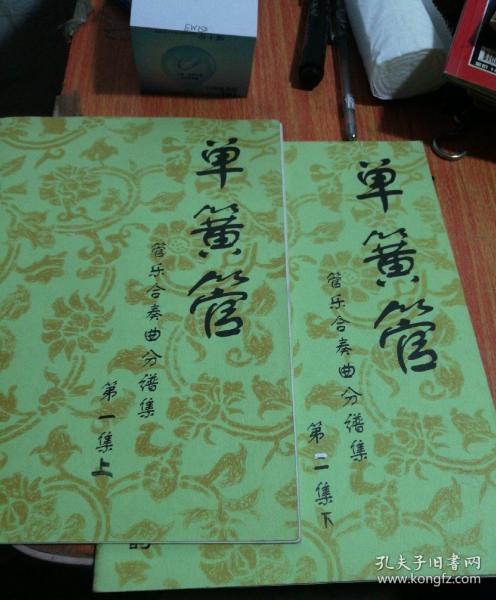 单簧管
管乐合奏曲分谱集
第一集上
单簧管
管乐合奏曲分谱集
第一集下
孔夫子旧书网
www.kongfz.com